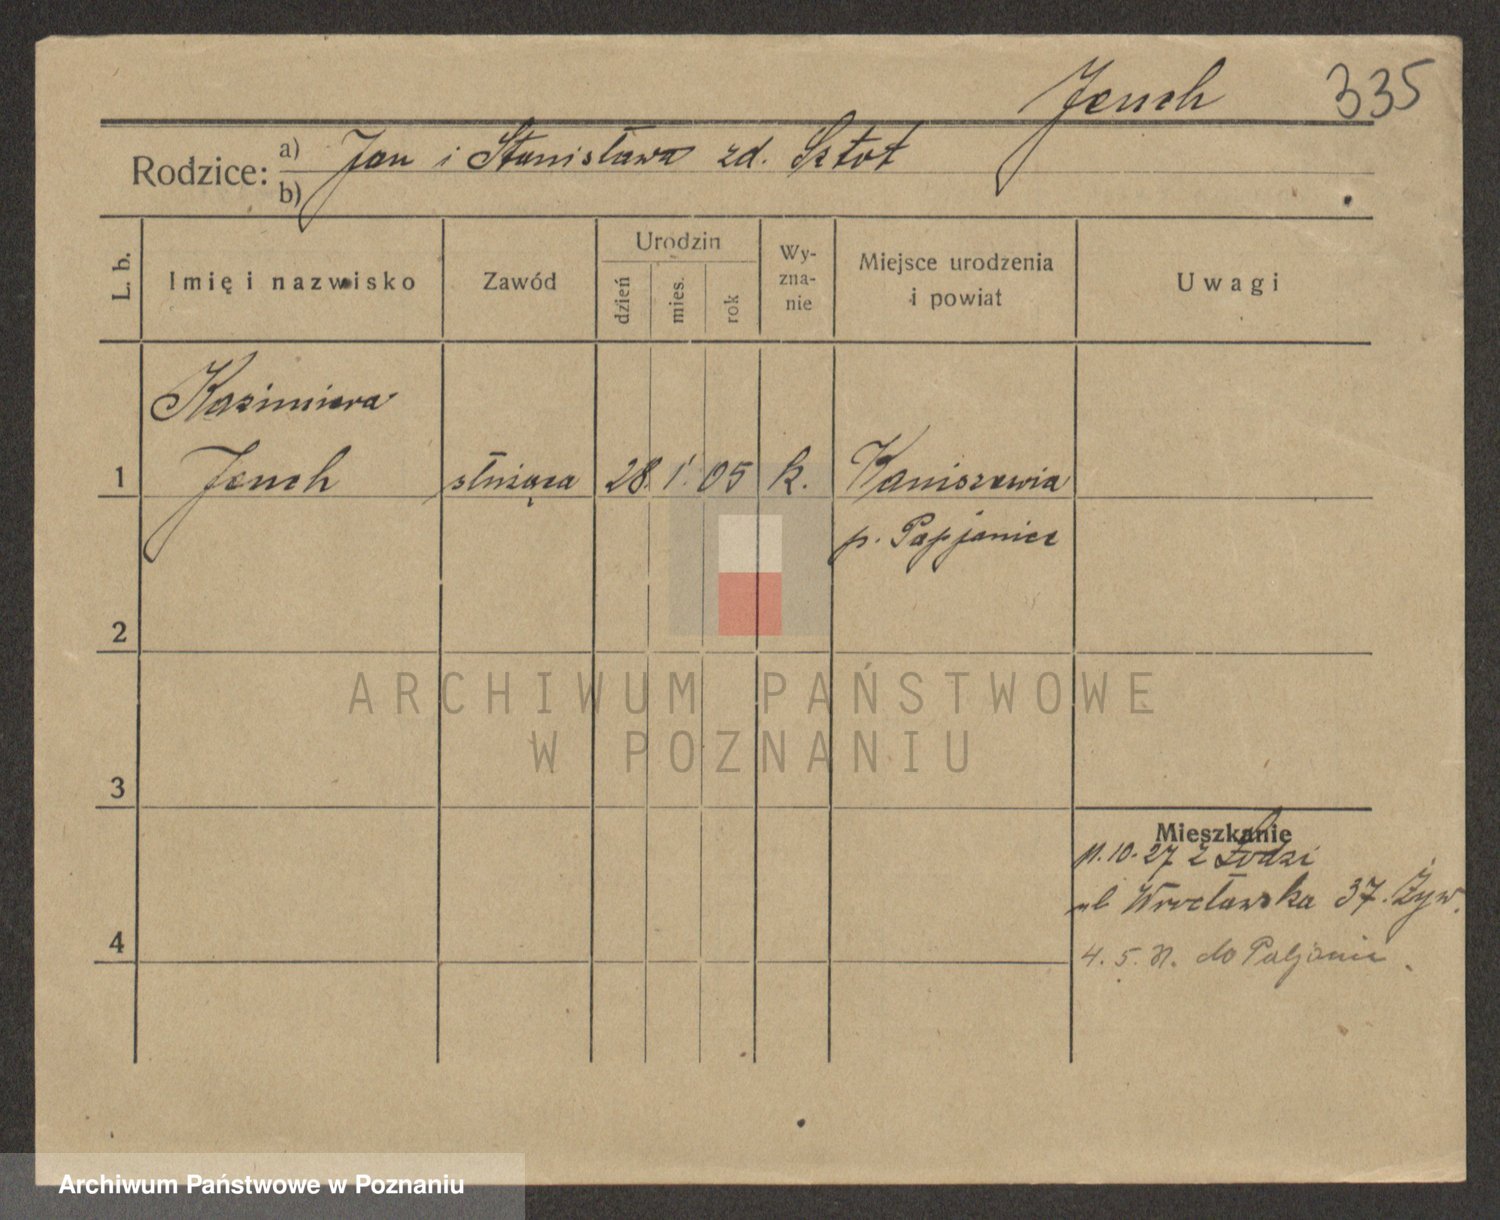 Jench 335
Rodzice: a) Jan i Stanisława zd. Szłot
b)
L. b. Imię i nazwisko Zawód Urodzin dzień mies. rok Wy-zna-nie Miejsce urodzenia i powiat Uwagi
Kazimiera
1 Jench służąca 28. 1. 05 k. Kaniszewia
p. Papjanice
2
ARCHIWUM PAŃSTWOWE
W POZNANIU
3
Mieszkanie
11.10.27 z Łodzi
ul Wrocławska 37. Żyw.
4. 5. do
4
Archiwum Państwowe w Poznaniu